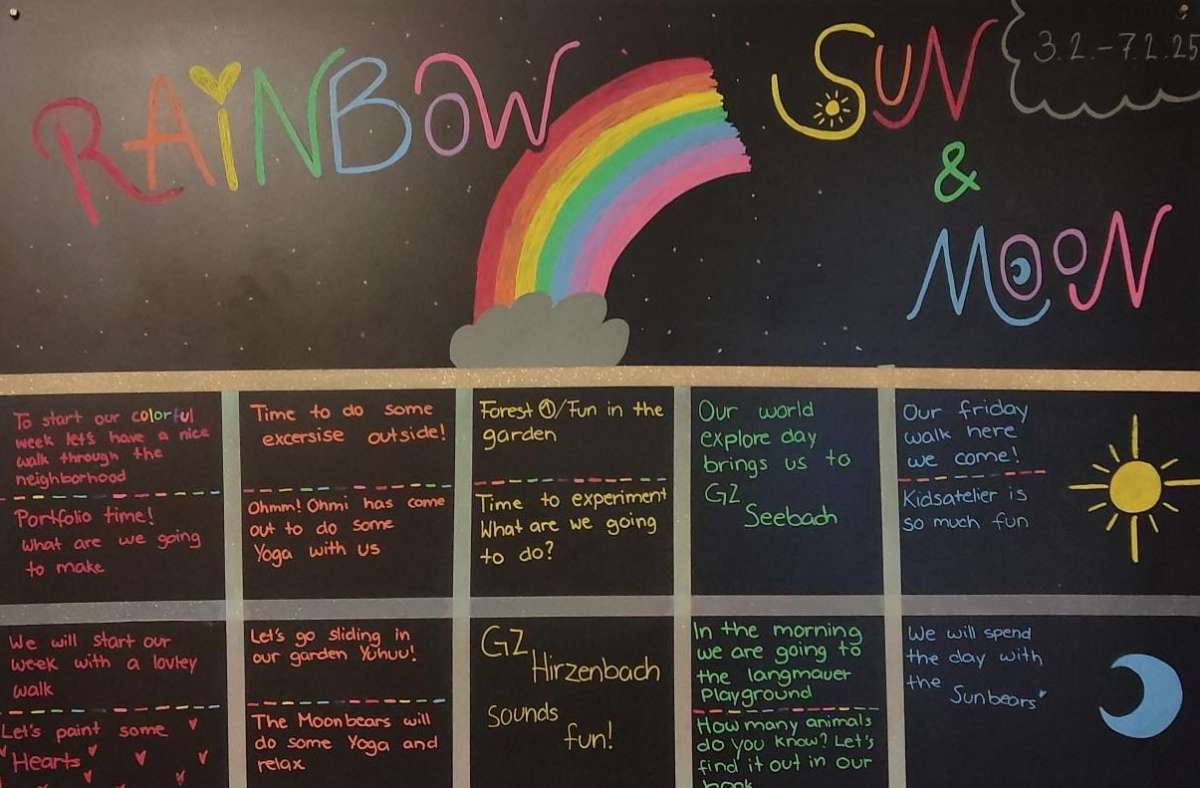 RAINBOW
SUN
&
MOON
3.2.-7.2.25
To start our colorful
week let's have a nice
walk through the
neighborhood
Portfolio time!
What are we going
to make
Time to do some
excersise outside!
Ohmm! Ohmi has come
out to do some
Yoga with us
Forest ①/Fun in the
garden
Time to experiment
What are we going
to do?
Our world
explore day
brings us to
GZ
Seebach
Our friday
walk here
we come!
Kidsatelier is
so much fun
We will start our
week with a lovley
walk
Let's paint some
Hearts
Let's go sliding in
our garden Yuhuu!
The Moonbears will
do some Yoga and
relax
GZ
Hirzenbach
Sounds
fun!
In the morning
we are going to
the langmauer
Playground
How many animals
do you know? Let's
find it out in our
book
We will spend
the day with
the Sunbears